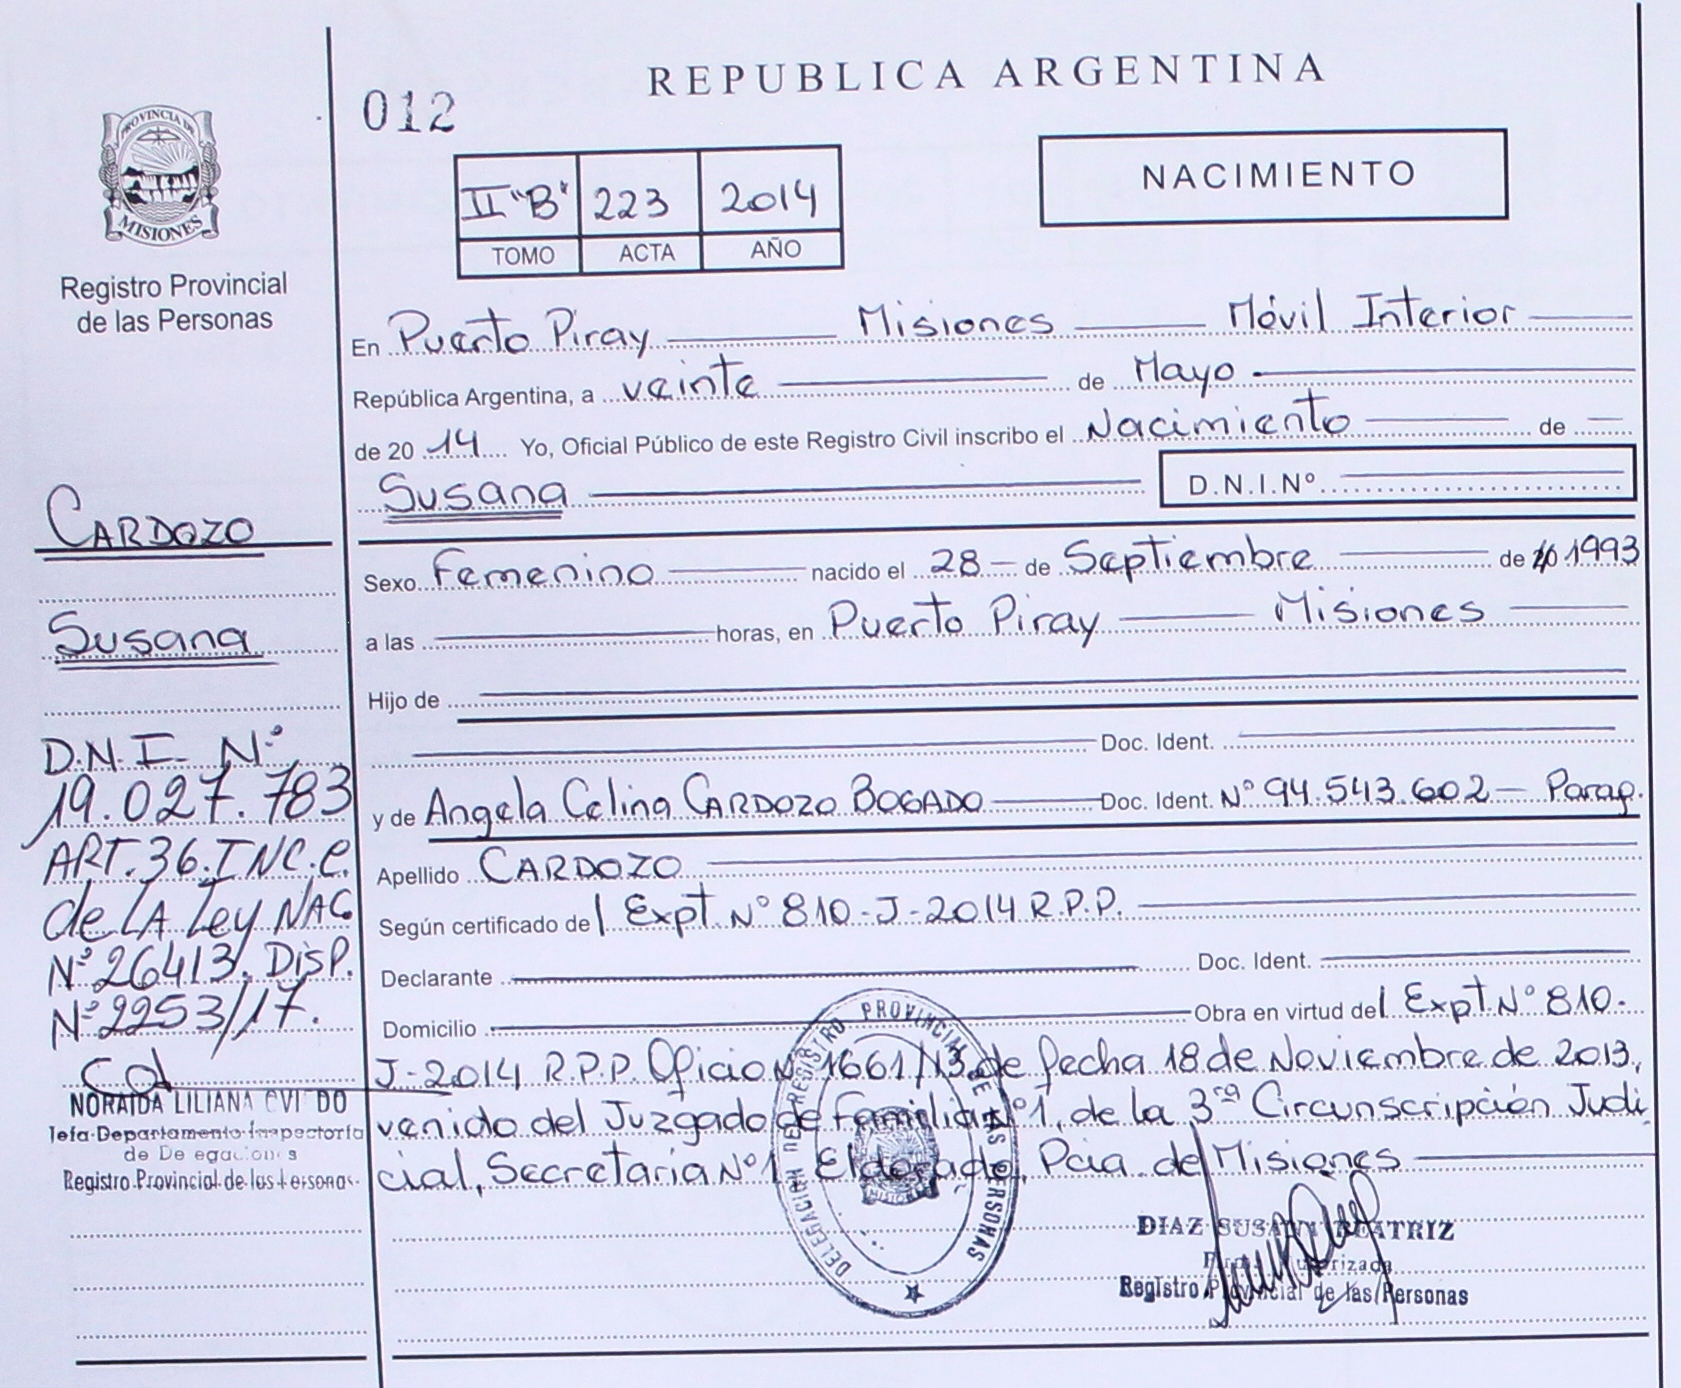 REPUBLICA ARGENTINA
012
NACIMIENTO
II "B" 223 2014
TOMO ACTA AÑO
PROVINCIA DE
MISIONES
Registro Provincial
de las Personas
En Puerto Piray Misiones Móvil Interior
República Argentina, a veinte de Mayo
de 20 14 Yo, Oficial Público de este Registro Civil inscribo el Nacimiento de
Susana D.N.I.Nº
Sexo Femenino nacido el 28 de Septiembre de 1993
a las horas, en Puerto Piray Misiones
Hijo de
Doc. Ident.
y de Angela Celina CARDOZO BOGADO Doc. Ident. Nº 94.543.602 - Parag.
Apellido CARDOZO
Según certificado del Expt. Nº 810-J-2014 R.P.P.
Declarante Doc. Ident.
Domicilio Obra en virtud del Expt. Nº 810-
J-2014 R.P.P. Oficio Nº 1661/13 de fecha 18 de Noviembre de 2013,
venido del Juzgado de Familia Nº 1, de la 3ra Circunscripción Judi
cial, Secretaria Nº 1, Eldorado, Pcia de Misiones
DELEGACION DEL REGISTRO PROVINCIAL DE LAS PERSONAS
DIAZ SUSANA BEATRIZ
Firma Autorizada
Registro Provincial de las Personas
CARDOZO
Susana
D.N.I. Nº
19.027.783
ART. 36. INC. c.
de LA Ley NAC
Nº 26413. DISP.
Nº 2253/17.
NORAIDA LILIANA
Jefa Departamento Inspectoría
de Delegaciones
Registro Provincial de las Personas